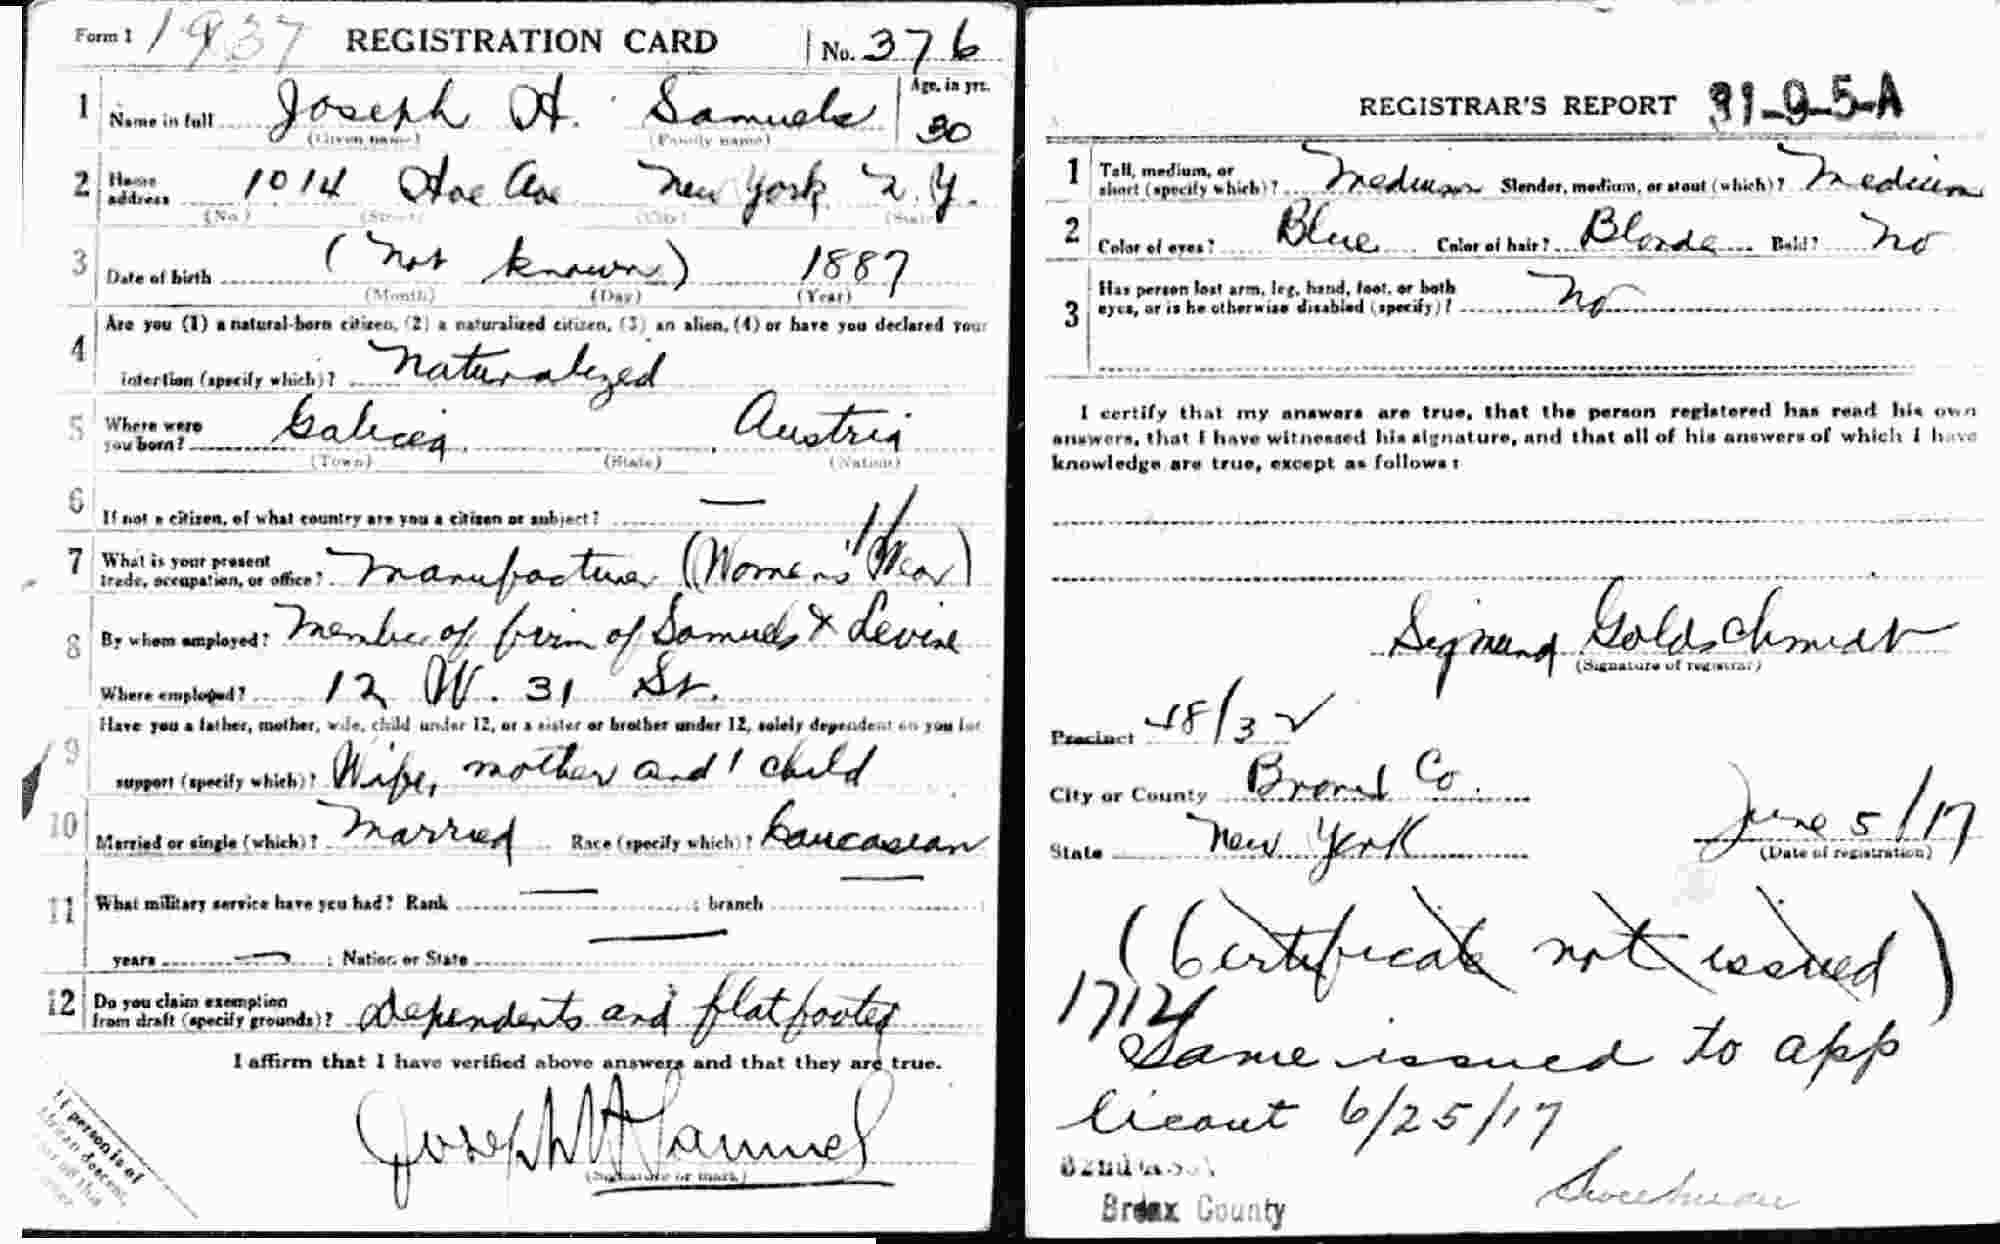 Form 1 1937 REGISTRATION CARD No. 376
1 Name in full Joseph H. Samuels Age, in yrs. 30
(Given name) (Family name)
2 Home address 1014 Hoe Ave New York N.Y.
(No.) (Street) (City) (State)
3 Date of birth (not known) 1887
(Month) (Day) (Year)
4 Are you (1) a natural-born citizen, (2) a naturalized citizen, (3) an alien, (4) or have you declared your
intention (specify which)? Naturalized
5 Where were you born? Galicia, Austria
(Town) (State) (Nation)
6 If not a citizen, of what country are you a citizen or subject? —
7 What is your present trade, occupation, or office? Manufacturer (Women's Wear)
8 By whom employed? Member of firm of Samuels & Levine
Where employed? 12 W. 31 St.
9 Have you a father, mother, wife, child under 12, or a sister or brother under 12, solely dependent on you for
support (specify which)? Wife, mother and 1 child
10 Married or single (which)? Married Race (specify which)? Caucasian
11 What military service have you had? Rank — ; branch —
years — ; Nation or State —
12 Do you claim exemption from draft (specify grounds)? Dependents and flatfooted
I affirm that I have verified above answers and that they are true.
Joseph H Samuel
(Signature or mark)
If person is of
African descent,
REGISTRAR'S REPORT 31-9-5-A
1 Tall, medium, or short (specify which)? Medium Slender, medium, or stout (which)? Medium
2 Color of eyes? Blue Color of hair? Blonde Bald? No
3 Has person lost arm, leg, hand, foot, or both
eyes, or is he otherwise disabled (specify)? No
I certify that my answers are true, that the person registered has read his own
answers, that I have witnessed his signature, and that all of his answers of which I have
knowledge are true, except as follows:
Sigmund Goldschmidt
(Signature of registrar)
Precinct 18/32
City or County Bronx Co.
State New York June 5/17
(Date of registration)
(Certificate not issued)
1712
Same issued to app
licant 6/25/17
Bronx County